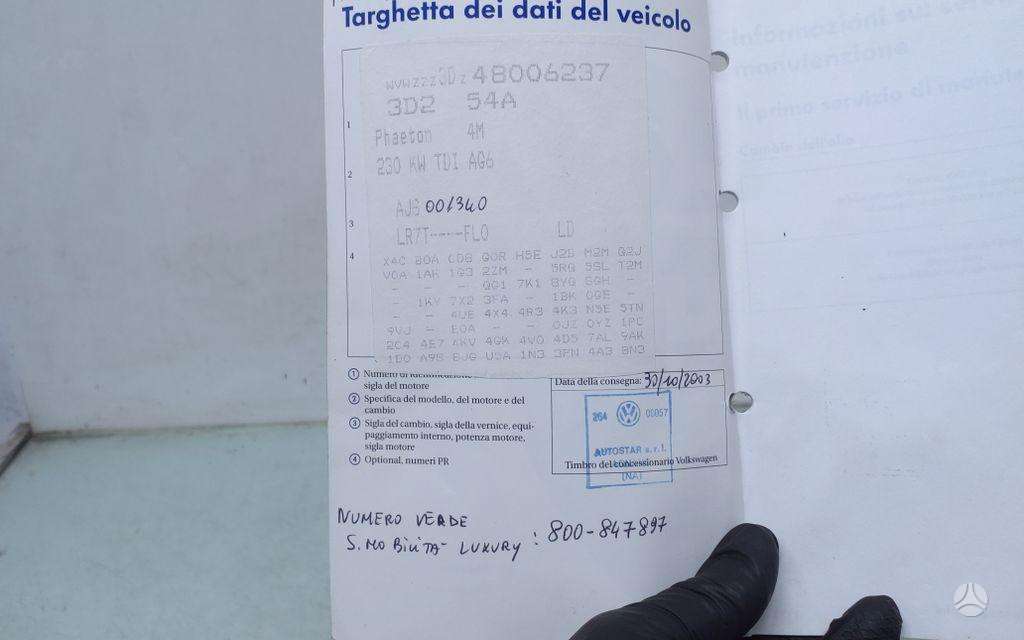 Targhetta dei dati del veicolo
WVWZZZ3DZ48006237
3D2 54A
1
Phaeton 4M
2
230 KW TDI AG6
3
001340
LR7T----FLO LD
4
X4C B0A C08 G0R H5E J2S M2M G2J
V0A 1AR 1G3 2ZM - 5RG 5SL T2M
- - - QG1 7K1 8YQ SGH -
- 1KY 7X2 3FA - 1BK 0GE -
- - 4UE 4X4 4R3 4K3 N5E 5TN
9VJ - E0A - - 0JZ 0YZ 1PC
2C4 4E7 4KV 4GR 4V0 4D5 7AL 9AK
1D0 A9S 8JG U5A 1N3 3PN 4A3 8N3
① Numero di identificazione
sigla del motore
② Specifica del modello, del motore e del
cambio
③ Sigla del cambio, sigla della vernice, equi-
paggiamento interno, potenza motore,
sigla motore
④ Optional, numeri PR
Data della consegna: 30/10/2003
264 00057
AUTOSTAR s.r.l.
(NA)
Timbro del concessionario Volkswagen
NUMERO VERDE
S.MOBILITA' LUXURY : 800-847897
Informazioni sul
manutenzione
Il primo servizio di
Cambio dell'olio